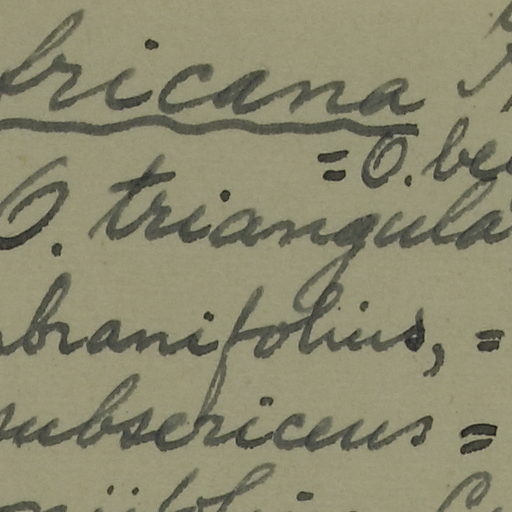 fricana
= O. be
O. triangula
branifolius, =
subsericeus =